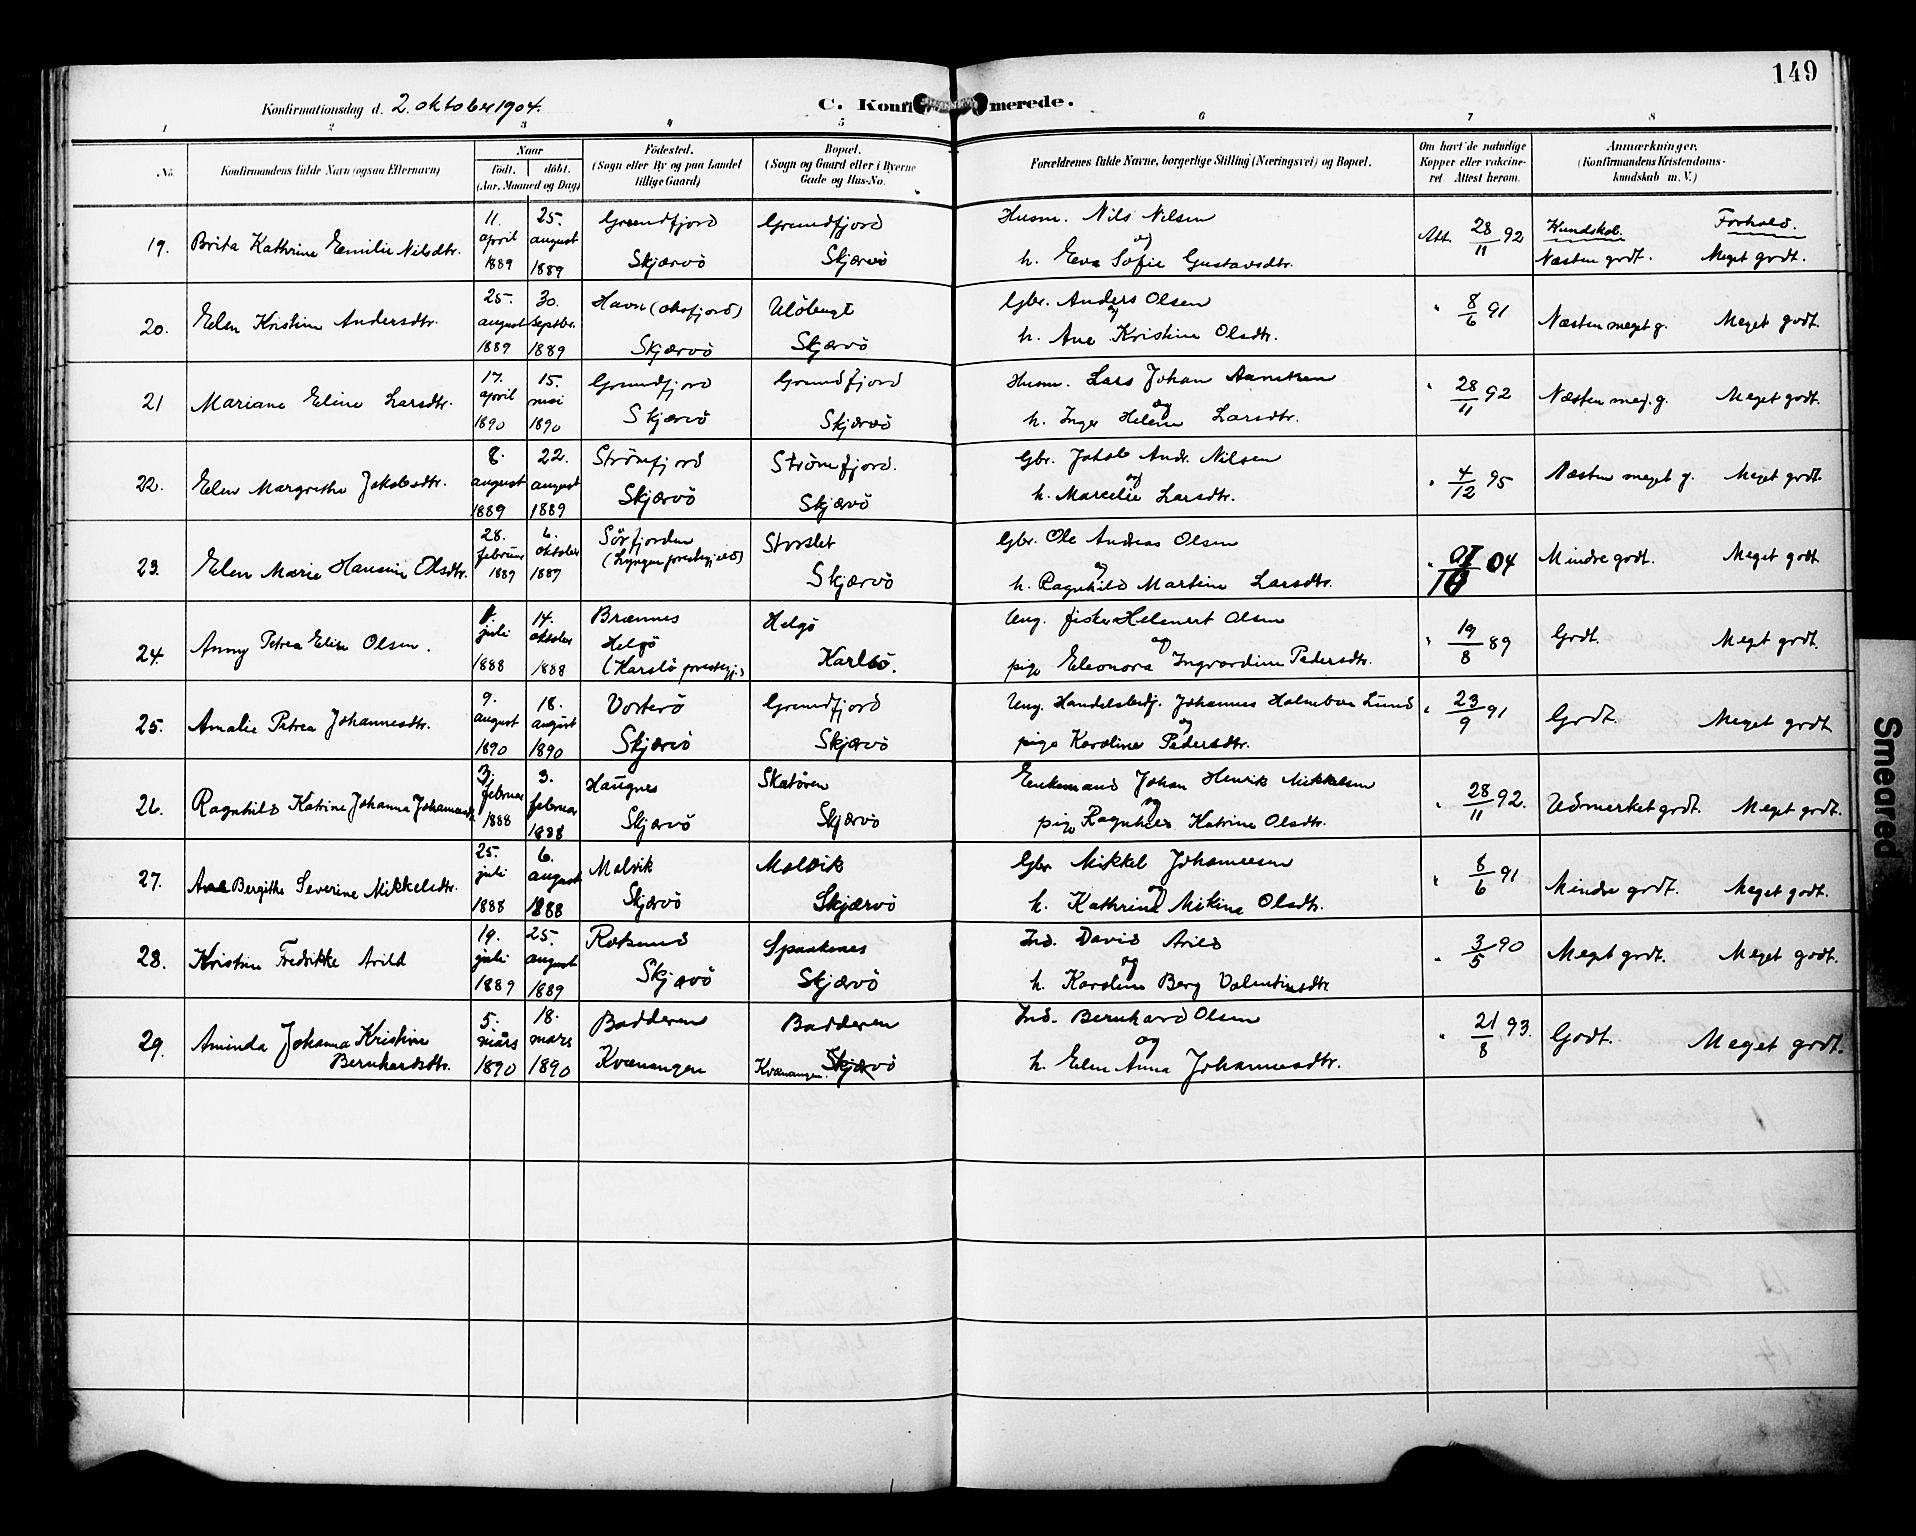 149
Konfirmationsdag d. 2. oktober 1904.
C. Konfirmerede.
1 2 3 4 5 6 7 8
No.
Konfirmandens fulde Navn (ogsaa Efternavn)
Naar
födt. döbt.
(Aar, Maaned og Dag)
Födested.
(Sogn eller By og paa Landet
tillige Gaard)
Bopæl.
(Sogn og Gaard eller i Byerne
Gade og Hus-No.
Forældrenes fulde Navne, borgerlige Stilling (Næringsvei) og Bopæl.
Om havt de naturlige
Kopper eller vakcine-
ret Attest herom.
Anmærkninger.
(Konfirmandens Kristendoms-
kundskab m. V.)
19. Brita Kathrine Emilie Nilsdtr. 11. april 1889 25. august 1889 Grundfjord Skjærvö Grundfjord Skjærvö
Husm. Nils Nilsen
og
h. Eva Sofie Gustavsdtr.
Att. 28/11 92 Kundskab. Næsten godt. Forhold. Meget godt.
20. Elen Kristine Andersdtr. 25. august 1889 30. septbr. 1889 Havn (oksfjord) Skjærvö Ulöbugt Skjærvö
Gbr. Anders Olsen
og
h. Ane Kristine Olsdtr.
" 8/6 91 Næsten meget g. Meget godt.
21 Mariane Eline Larsdtr. 17. april 1890 15. mai 1890 Grundfjord Skjærvö Grundfjord Skjærvö
Husm. Lars Johan
og
h. Inger Helene Larsdtr.
" 28/11 92 Næsten meg. g. Meget godt.
22. Elen Margrethe Jakobsdtr. 8. august 1889 22. august 1889 Strömfjord Skjærvö Strömfjord. Skjærvö
Gbr. Jakob Andr. Nilsen
og
h. Marcelie Larsdtr.
" 4/12 95 Næsten meget g. Meget godt.
23. Elen Marie Hansine Olsdtr. 28. februar 1887 6. oktober 1887 Sörfjorden (Lyngen prestegjeld) Storslet Skjærvö
Gbr. Ole Andreas Olsen
og
h. Ragnhild Martine Larsdtr.
" 04 Mindre godt. Meget godt
24. Anny Petrea Elise Olsen. juli 1888 14. oktober 1888 Brænnes Helgö (Karlsö prestegj.) Helgö Karlsö.
Ung. fisker Helenert Olsen
og
pige Eleonora Ingvardine Pedersdtr.
" 19/8 89 Godt. Meget godt.
25. Amalie Petrea Johannesdtr. 9. august 1890 18. august 1890 Vorterö Skjærvö Grundfjord Skjærvö
Ung. Handelsbetj. Johannes Holmboe Lund
og
pige Karoline Pedersdtr.
" 23/9 91 Godt. Meget godt
26. Ragnhild Katrine Johanna Johannesdtr. 3. februar 1888 3. februar 1888 Haugnes Skjærvö Skatören Skjærvö
Enkemand Johan Henrik Mikkelsen
og
pige Ragnhild Katrine Olsdtr.
" 28/11 92. Udmerket godt. Meget godt.
27. Ane Bergithe Severine Mikkelsdtr. 25. juli 1888 6. august 1888 Molvik Skjærvö Molvik Skjærvö
Gbr Mikkel Johannesen
og
h. Kathrine Mikine Olsdtr.
" 8/6 91 Mindre godt. Meget godt.
28. Kristine Fredrikke Arild 19. juli 1889 25. august 1889 Rotsund Skjærvö Spaakenes Skjærvö
Ind. David Arild
og
h. Karoline Berg Valentinsdtr
" 3/5 90 Meget godt. Meget godt.
29. Aminda Johanna Kristine Bernhardsdtr. 5. mars 1890 18. mars 1890 Badderen Kvænangen Badderen Kvænangen. Skjærvö
Ind. Bernhard Olsen
og
h. Elen Anna Johannesdtr.
" 21/8 93. Godt. Meget godt.
Smeared